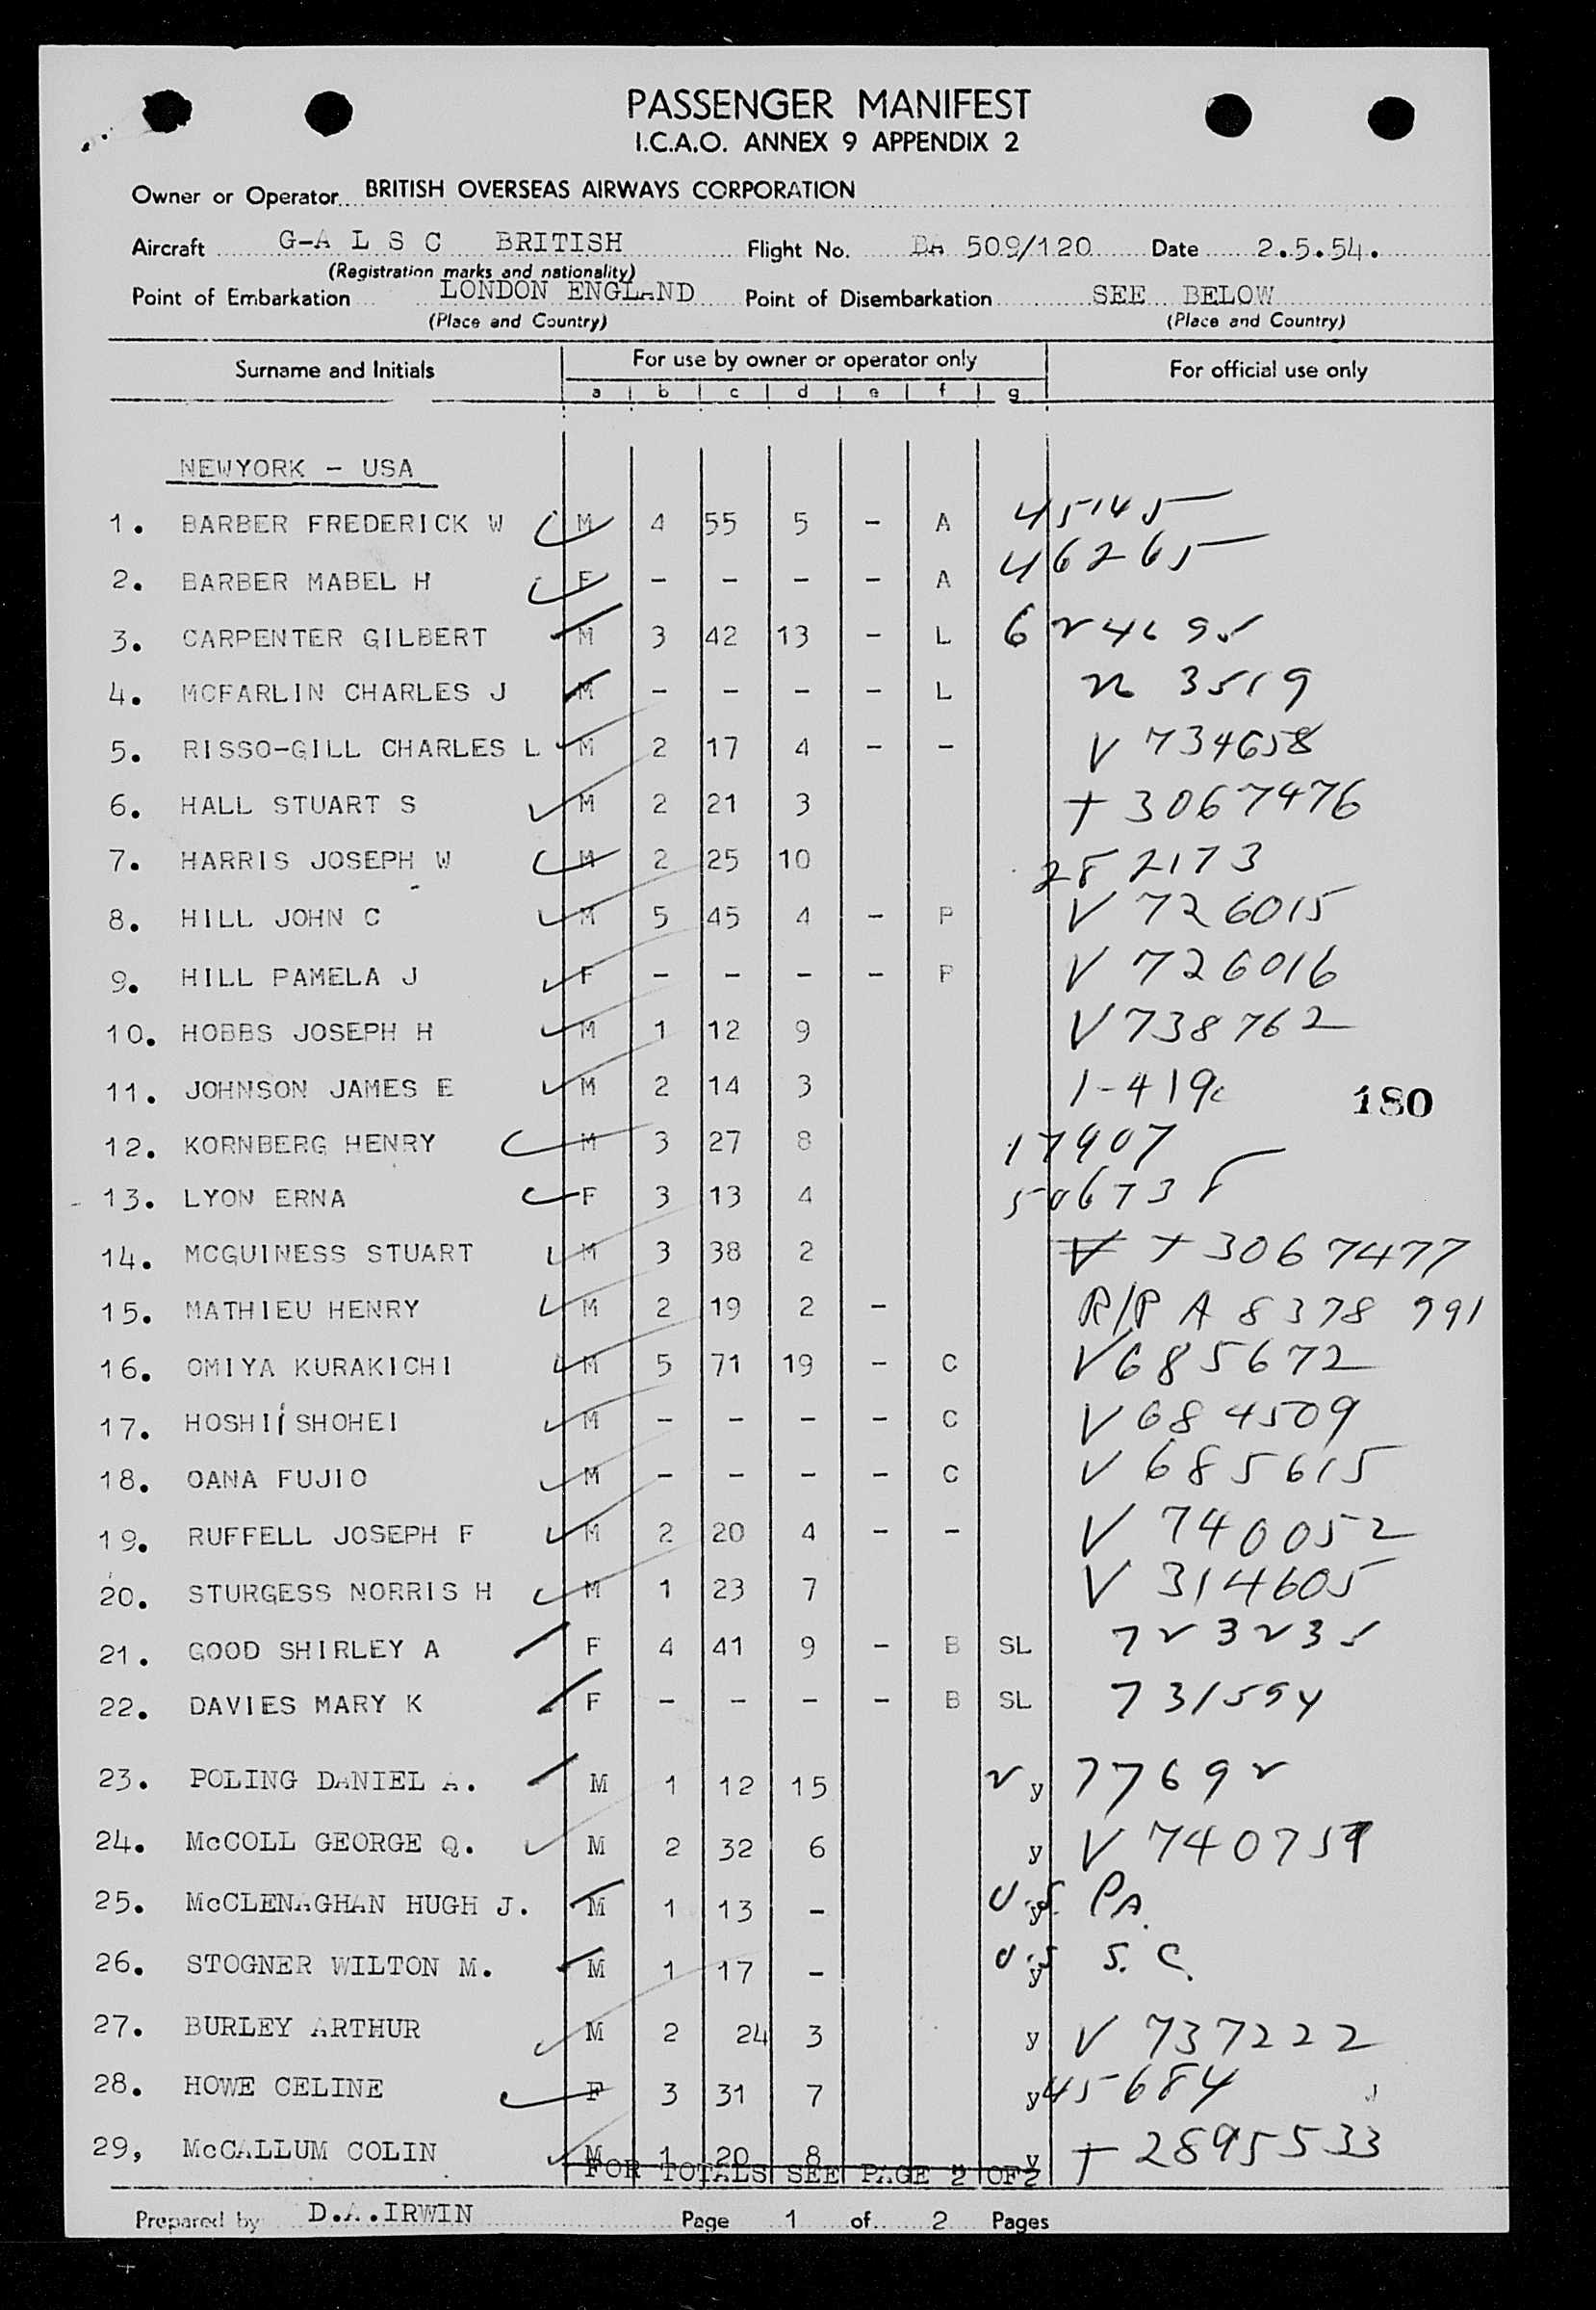 PASSENGER MANIFEST
I.C.A.O. ANNEX 9 APPENDIX 2
Owner or Operator BRITISH OVERSEAS AIRWAYS CORPORATION
Aircraft G-A L S C BRITISH Flight No. BA 509/120 Date 2.5.54.
(Registration marks and nationality)
Point of Embarkation LONDON ENGLAND Point of Disembarkation SEE BELOW
(Place and Country) (Place and Country)
Surname and Initials For use by owner or operator only For official use only
a b c d e f g
NEWYORK - USA
1. BARBER FREDERICK W M 4 55 5 - A 45145
2. BARBER MABEL H F - - - - A 46265
3. CARPENTER GILBERT M 3 42 13 - L
4. MCFARLIN CHARLES J M - - - - L 3519
5. RISSO-GILL CHARLES L M 2 17 4 - - V 734658
6. HALL STUART S M 2 21 3 + 3067476
7. HARRIS JOSEPH W M 2 25 10 282173
8. HILL JOHN C M 5 45 4 - P V 726015
9. HILL PAMELA J F - - - - P V 726016
10. HOBBS JOSEPH H M 1 12 9 V 738762
11. JOHNSON JAMES E M 2 14 3 1-419
180
12. KORNBERG HENRY M 3 27 8 17907
13. LYON ERNA F 3 13 4 50673
14. MCGUINESS STUART M 3 38 2 V + 3067477
15. MATHIEU HENRY M 2 19 2 - R/P A 8378 991
16. OMIYA KURAKICHI M 5 71 19 - C V685672
17. HOSHII SHOHEI M - - - - C V684509
18. OANA FUJIO M - - - - C V 685615
19. RUFFELL JOSEPH F M 2 20 4 - - V 740052
20. STURGESS NORRIS H M 1 23 7 V 314605
21. GOOD SHIRLEY A F 4 41 9 - B SL
22. DAVIES MARY K F - - - - B SL 731594
23. POLING DANIEL A. M 1 12 15 y 77692
24. McCOLL GEORGE Q. M 2 32 6 y V 740759
25. McCLENAGHAN HUGH J. M 1 13 - y U.S. PA.
26. STOGNER WILTON M. M 1 17 - y U.S S.C.
27. BURLEY ARTHUR M 2 24 3 y V 737222
28. HOWE CELINE F 3 31 7 y 45684
29, McCALLUM COLIN M 1 20 8 y + 2895533
FOR TOTALS SEE PAGE 2 OF2
Prepared by D.A.IRWIN Page 1 of 2 Pages